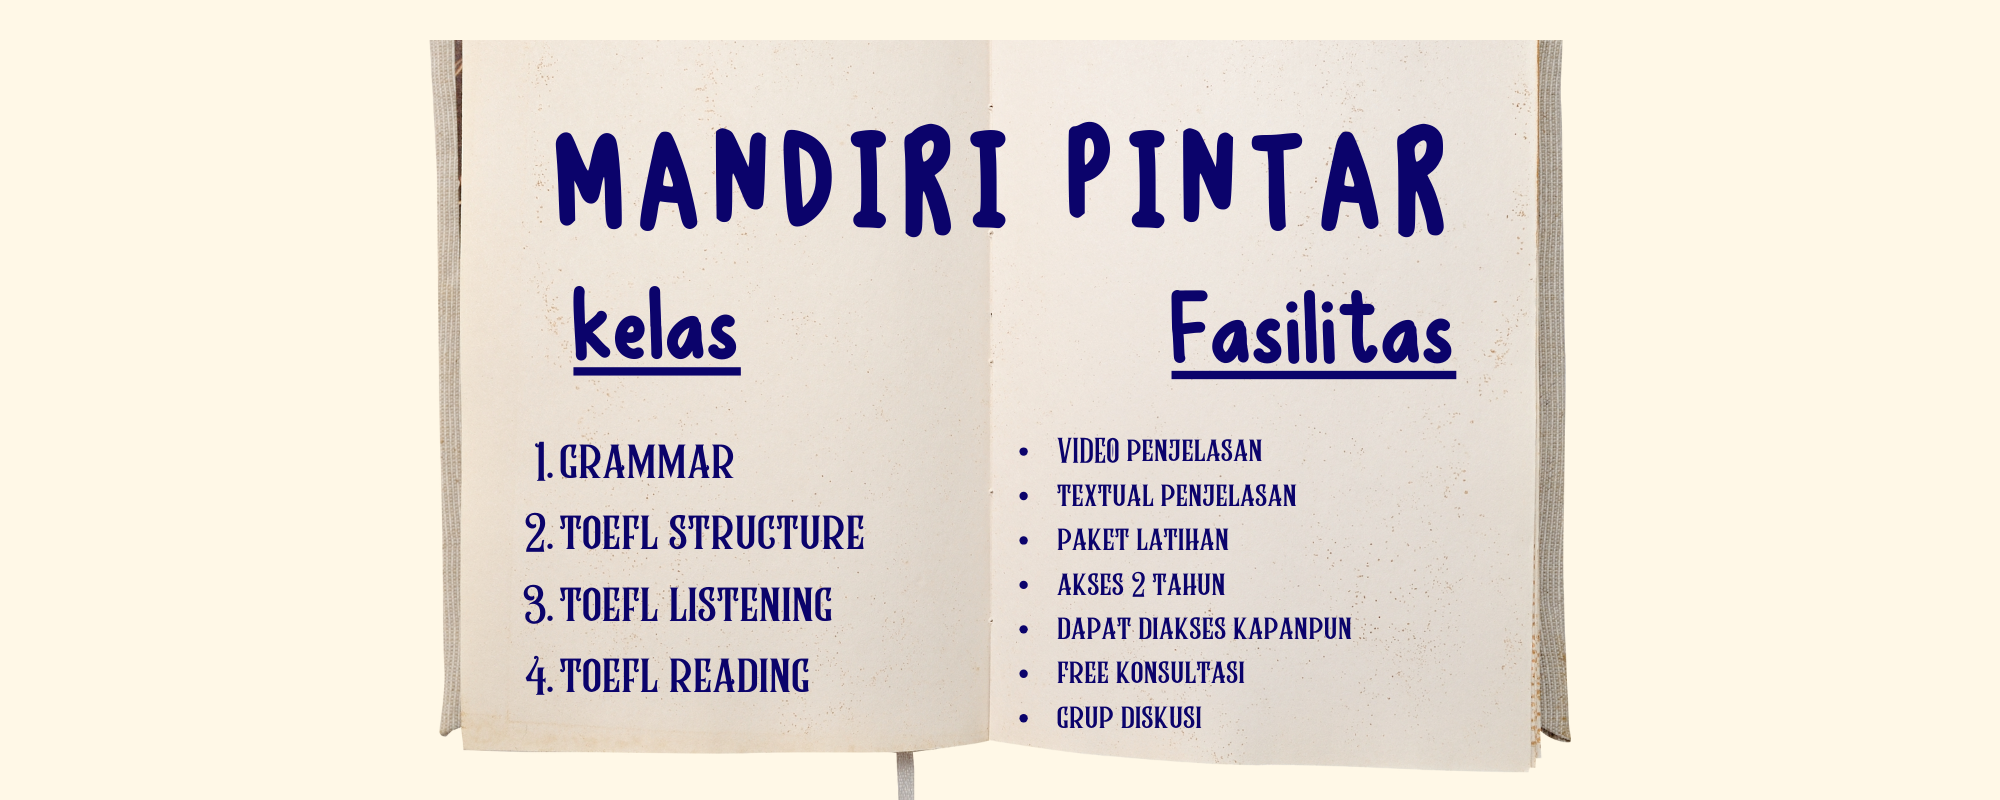 MANDIRI PINTAR
kelas
1. GRAMMAR
2. TOEFL STRUCTURE
3. TOEFL LISTENING
4. TOEFL READING
Fasilitas
• VIDEO PENJELASAN
• TEXTUAL PENJELASAN
• PAKET LATIHAN
• AKSES 2 TAHUN
• DAPAT DIAKSES KAPANPUN
• FREE KONSULTASI
• GRUP DISKUSI